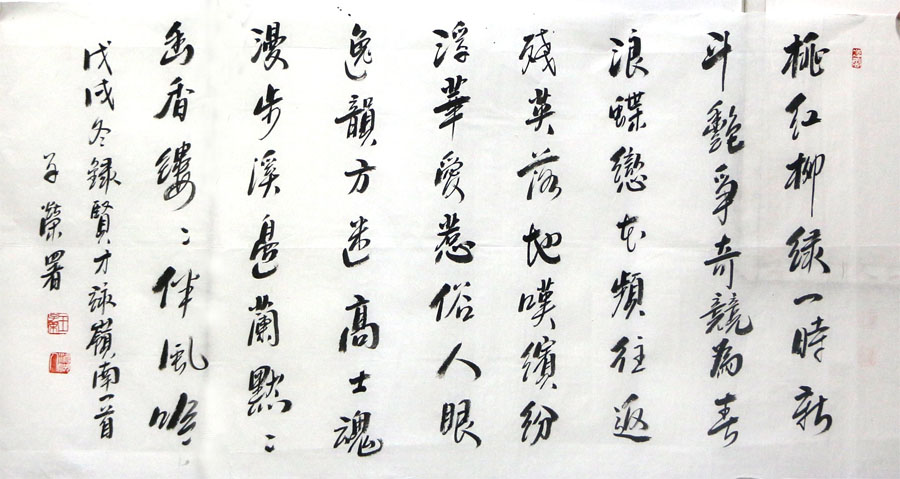 桃红柳绿一時新
斗艷爭奇競為春
浪蝶戀花頻往返
殘英落地嘆繽紛
浮華愛惹俗人眼
逸韻方迷高士魂
漫步溪邊蘭默〻
幽香縷〻伴風吟
戊戌冬錄賢才詠嶺南一首
子榮署